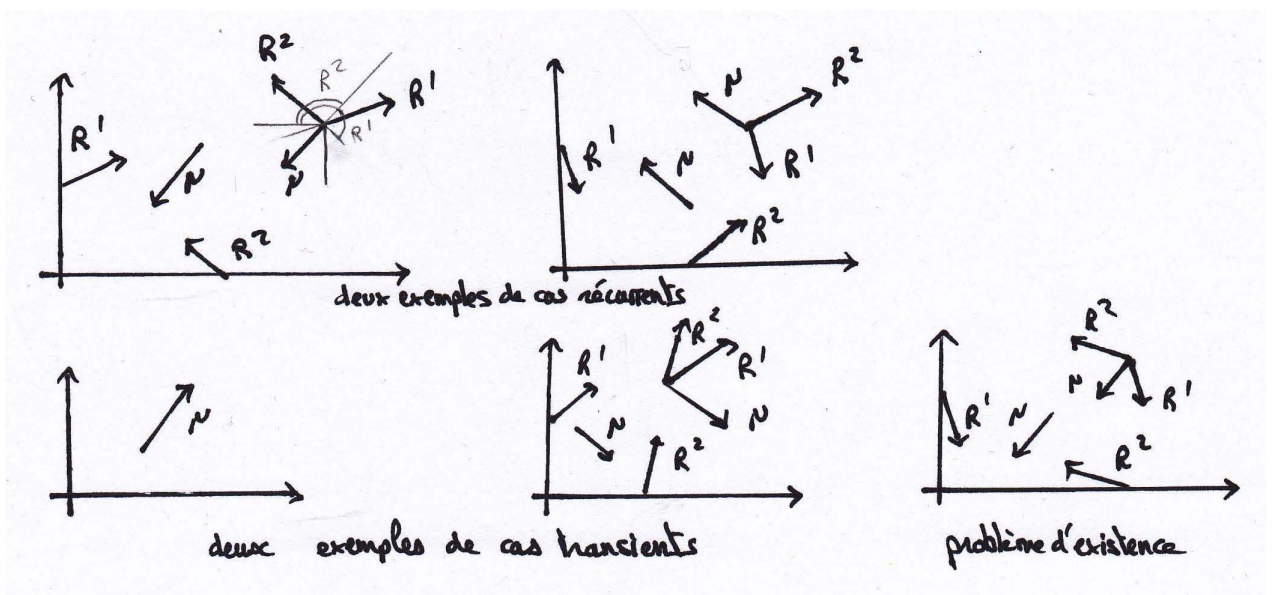 R²
R² R¹
R¹
R¹
μ
μ
R²
μ R²
R¹
R¹
μ
R²
deux exemples de cas récurrents
μ
R²
R¹
R¹
μ
μ
R²
R²
μ
R¹
R¹
μ
R²
deux exemples de cas transients
problème d'existence